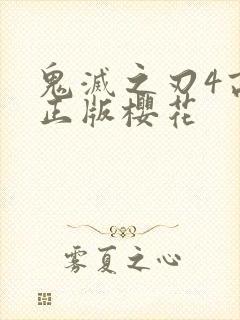 鬼滅之刃4
正版櫻花
雾夏之心